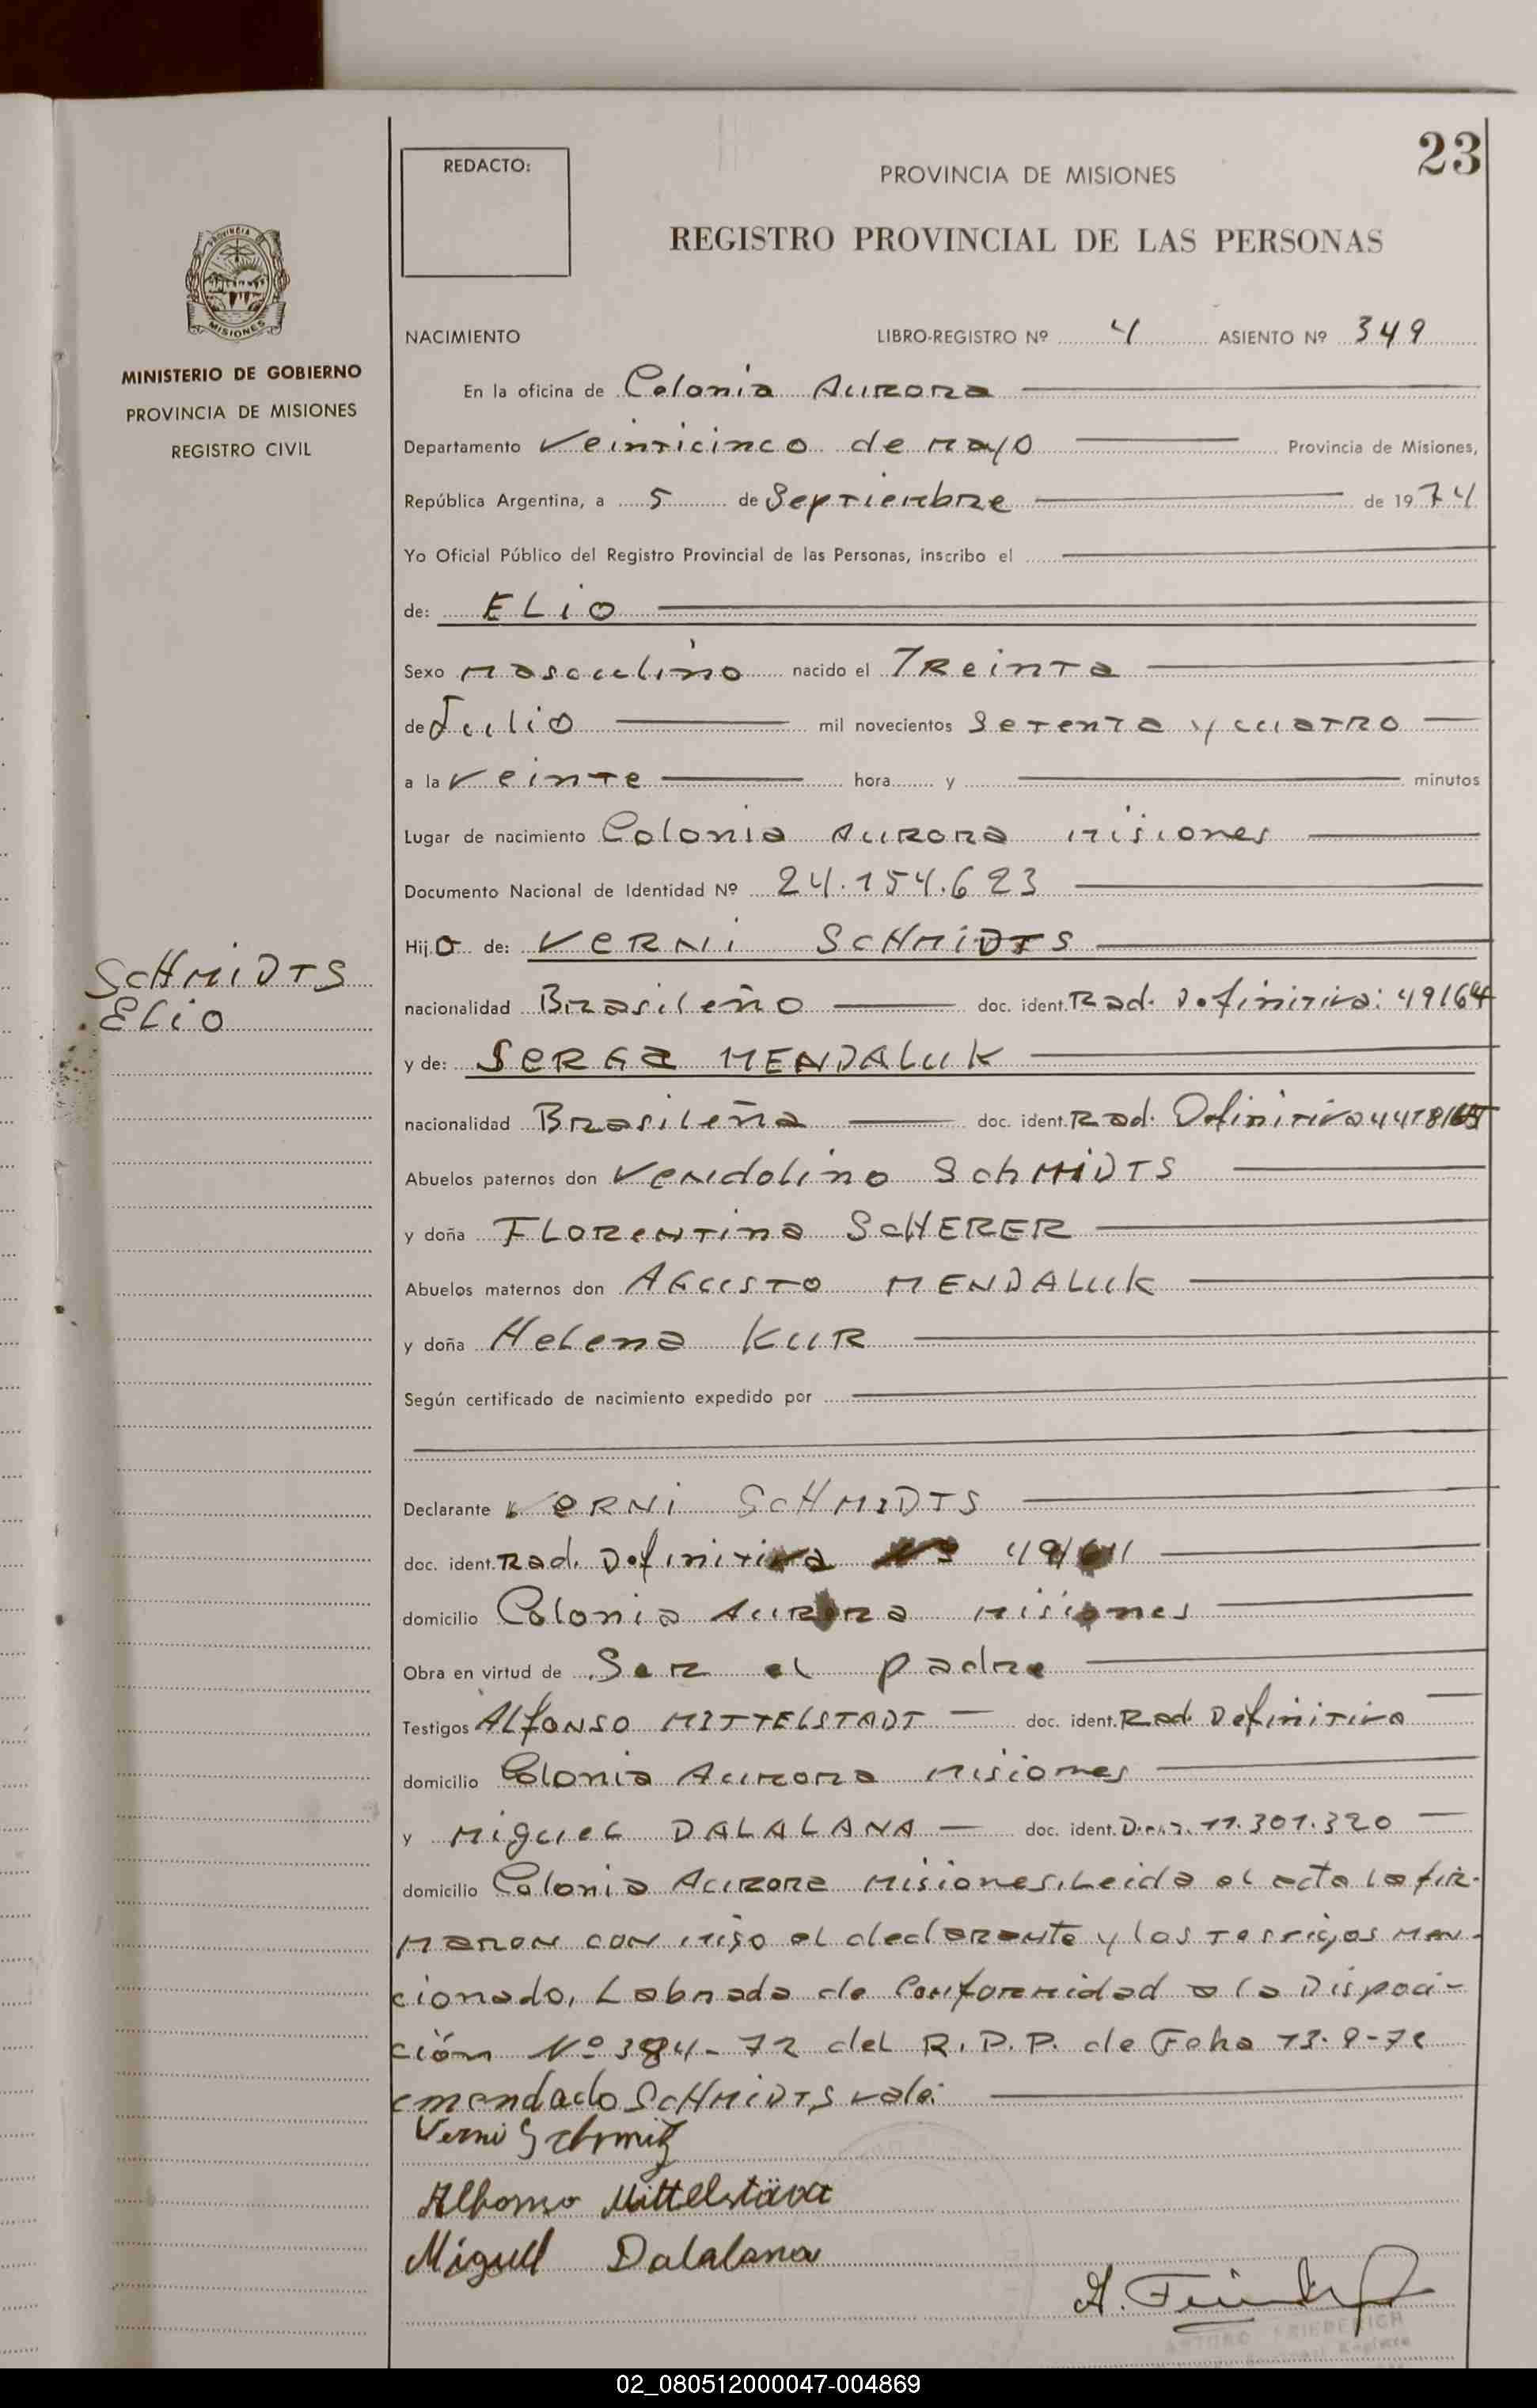 23
REDACTO:
PROVINCIA DE MISIONES
REGISTRO PROVINCIAL DE LAS PERSONAS
PROVINCIA
MISIONES
MINISTERIO DE GOBIERNO
PROVINCIA DE MISIONES
REGISTRO CIVIL
NACIMIENTO LIBRO-REGISTRO Nº 4 ASIENTO Nº 349
En la oficina de Colonia Aurora
Departamento Veinticinco de mayo Provincia de Misiones,
República Argentina, a 5 de Septiembre de 1974
Yo Oficial Público del Registro Provincial de las Personas, inscribo el
de: ELiO
Sexo masculino nacido el Treinta
de Julio mil novecientos Setenta y cuatro
a la veinte hora y minutos
Lugar de nacimiento Colonia Aurora Misiones
Documento Nacional de Identidad Nº 24.154.623
Hijo de: VERNi SCHMiDTS
SCHMiDTS
ELiO
nacionalidad Brasileño doc. ident. Rad. Definitiva:
y de: SERGa MENDALUK
nacionalidad Brasileña doc. ident. Rad. Definitiva
Abuelos paternos don Vendolino SchMiDTS
y doña FLORentina ScHERER
Abuelos maternos don AGUSTO MENDALUK
y doña Helena KUR
Según certificado de nacimiento expedido por
Declarante VERNi SCHMIDTS
doc. ident. Rad. Definitiva Nº
domicilio Colonia Aurora Misiones
Obra en virtud de Ser el padre
Testigos ALfONSO MITTELSTADT doc. ident. Rad. Definitiva
domicilio Colonia Aurora Misiones
y Miguel DALALANA doc. ident. 11.301.320
domicilio Colonia Aurora Misiones. Leida el acta la fir-
maron con migo el declarante y los testigos men-
cionado, Labrada de Conformidad a la Dispoci-
ción Nº 384-72 del R.P.P. de Feha
emendado SCHMiDTS vale:
Verni Schmitz
Alfonso Mittelstädt
Miguel Dalalana
ARTURO FRIEDERICH
02_080512000047-004869